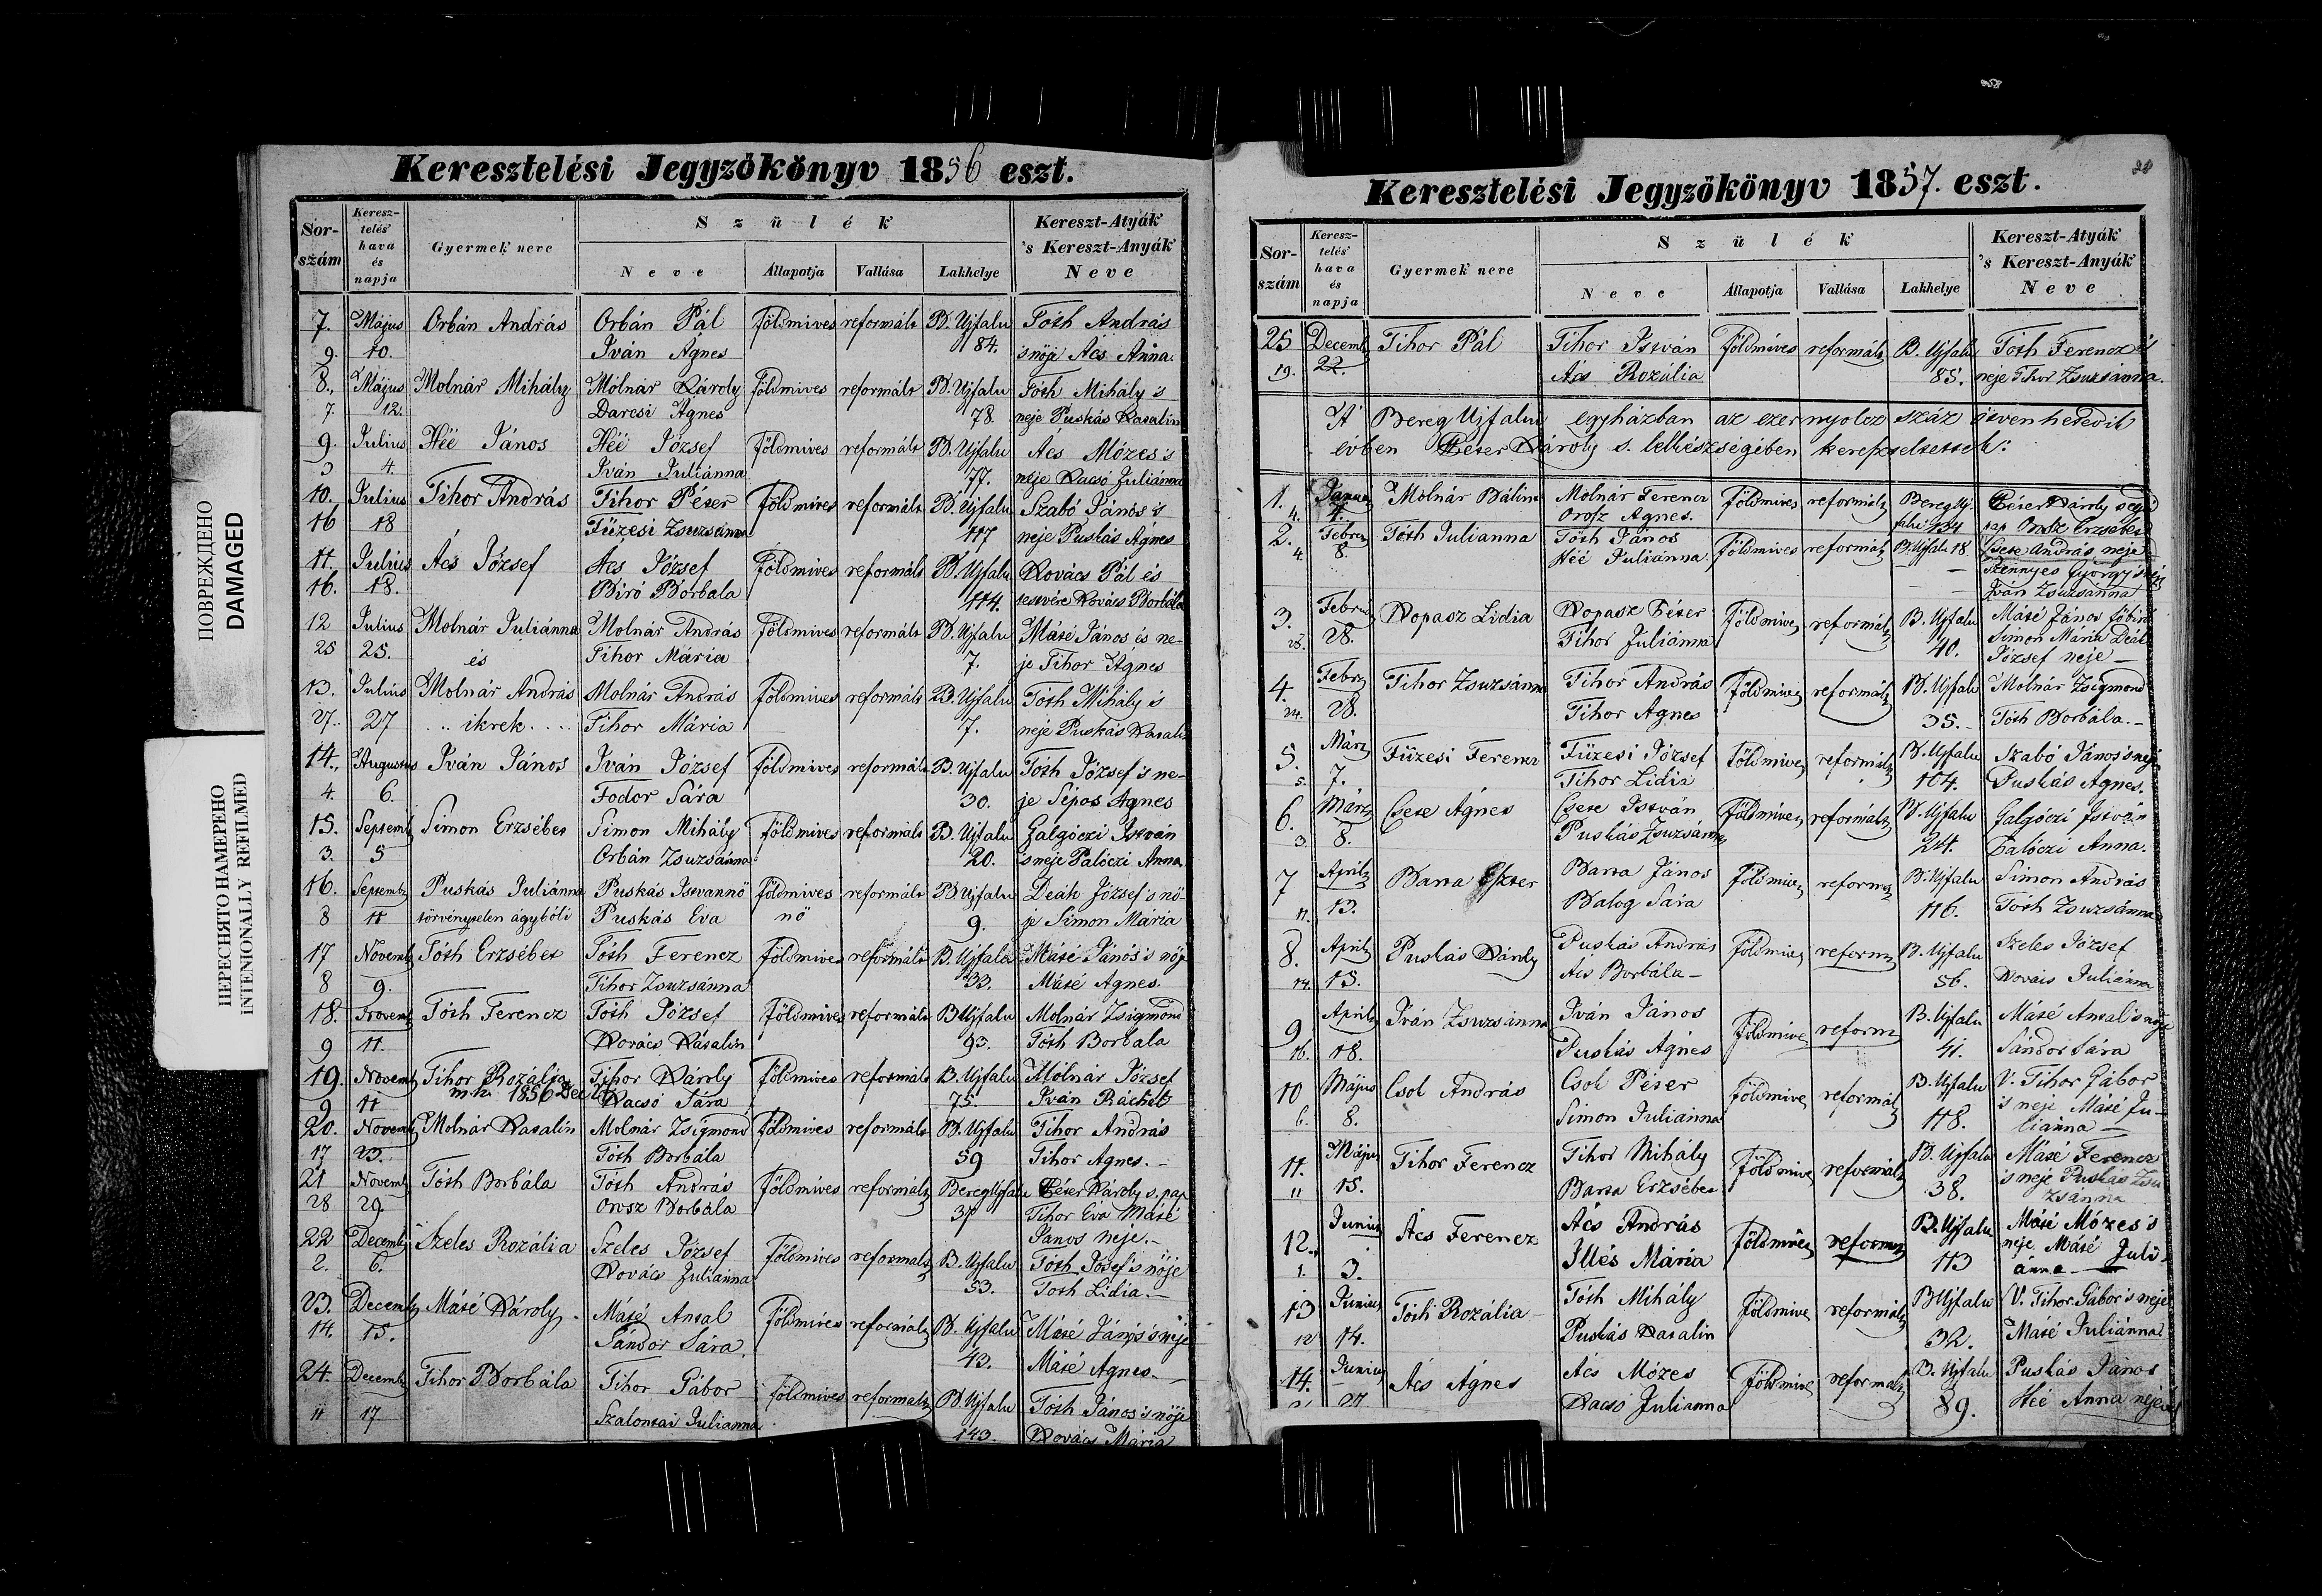 958
ПОВРЕЖДЕНО
DAMAGED
ПЕРЕСНЯТО НАМЕРЕНО
INTENIONALLY REFILMED
Keresztelési Jegyzökönyv 1856 eszt.
Sor-szám Keresz-telés' hava és napja Gyermek' neve Szülék Neve Állapotja Vallása Lakhelye Kereszt-Atyák 's Kereszt-Anyák Neve
7. Május Orbán András Orbán Pál földmives reformált B. Ujfalu Tóth András
9. 10. Iván Ágnes 84. 's nöje Acs Anna.
8. Május Molnár Mihály Molnár Károly földmives reformált B. Ujfalu Tóth Mihály 's
7. 12. Darcsi Ágnes 78. neje Puskás Katalin
9. Julius Héé János Héé József földmives reformált B. Ujfalu Ács Mózes 's
3 4 Iván Juliánna 77. neje Kacsó Juliánna
10. Julius Tihor András Tihor Péter földmives reformált B. Ujfalu Szabó János 's
16 18 Füzesi Zsuzsánna 117 neje Puskás Ágnes
11. Julius Ács József Ács József földmives reformált B. Ujfalu Kovács Pál és
16. 18. Biró Borbala 114. testvére Kovács Borbála
12 Julius Molnár Juliánna Molnár András földmives reformált B. Ujfalu Máté János és ne-
25 25. és Tihor Mária 7. je Tihor Ágnes
13. Julius Molnár András Molnár András földmives reformált B. Ujfalu Tóth Mihály 's
27. 27 .. ikrek .... Tihor Mária 7. neje Puskás Katalin
14. Augustus Iván János Iván József földmives reformált B. Ujfalu Tóth József 's ne-
4. 6. Fodor Sára 30. je Sipos Agnes
15. Septemb Simon Erzsébet Simon Mihály földmives reformált B. Ujfalu Galgóczi István
3. 5 Orbán Zsuzsánna 20. 's neje Palóczi Anna
16. Septemb Puskás Juliánna Puskás Istvannö földmives reformált B. Ujfalu Deák József 's nö-
8 11 törvénytelen ágybóli Puskás Eva nö 9. je Simon Mária
17 Novemb Tóth Erzsébet Tóth Ferencz földmives reformált B. Ujfalu Máté János 's nöje
8 9. Tihor Zsuzsánna 33. Máté Agnes.
18. Novemb Tóth Ferencz Tóth József földmives reformált B Ujfalu Molnár Zsigmond
9 11. Kovács Katalin 93. Tóth Borbala
19. Novemb Tihor Rozália Tihor Károly földmives reformált B. Ujfalu Molnár József
9 11 1856 Dec Kacsó Sára 75. Iván Ráchel
20. Novemb Molnár Katalin Molnár Zsigmond földmives reformált B. Ujfalu Tihor András
17 23. Tóth Borbála 59 Tihor Agnes. -
21 Novemb Tóth Borbála Tóth András földmives reformált Bereg Ujfalu Péter Károly s. pap
28 29. Orosz Borbála 37 Tihor Éva Máté
János neje.-
22 Decemb Szeles Rozália Szeles József földmives reformált B. Ujfalu Tóth József 's nöje
2. 6. Kovács Juliánna 53. Toth Lidia. -
23. Decemb Máté Károly Máté Antal földmives reformált B. Ujfalu Máté János 's néje
14. 15. Sándor Sára. 43. Máté Agnes. -
24. Decemb Tihor Borbála Tihor Gábor földmives reformált B. Ujfalu Tóth János 's nöje
11 17 Szalontai Julianna 143. Kovács Mária
Keresztelési Jegyzökönyv 1857. eszt.
Sor-szám Keresz-telés' hava és napja Gyermek' neve Szülék Neve Állapotja Vallása Lakhelye Kereszt-Atyák 's Kereszt-Anyák Neve
25 Decemb Tihor Pál Tihor István földmives reformált B. Ujfalu Tóth Ferencz 's
19. 22. Ács Rozália 85. neje Tihor Zsuzsánna.
A' Bereg Ujfalui egyházban az ezer nyolcz száz ötven hetedik
évben Péter Károly s. lelkészségében kereszteltettek:
1. Januar Molnár Bálint Molnár Ferencz földmives reformált Bereg Uj- Péter Károly segéd
4. 4. Orosz Agnes. falu 134 pap Orosz Erzsébet
2. Febru Tóth Julianna Tóth János földmives reformált B. Ujfalu 18. Csete András neje
4. 8 Héé Juliánna. Szennyes György 's neje
Iván Zsuzsánna
3. Febru Kopasz Lidia Kopasz Péter földmives reformált B. Ujfalu Máté János föbiró
28. 28. Tihor Juliánna 40. Simon Mária Deák
József neje -
4. Febru Tihor Zsuzsánna Tihor András földmives reformált B. Ujfalu Molnár Zsigmond
24. 28. Tihor Agnes 35. Tóth Borbála. -
5. Márz Füzesi Ferencz Füzesi József földmives reformált B. Ujfalu Szabó János 's neje
5. 7. Tihor Lidia 104. Puskás Agnes.
6. Márz Csete Ágnes Csete István földmives reformált B. Ujfalu Galgóczi István
3. 8. Puskás Zsuzsánna 24. Palóczi Anna.
7 April Barta Eszter Barta János földmives reform B. Ujfalu Simon András
11. 13. Balog Sára 116. Tóth Zsuzsánna
8. April Puskás Károly Puskás András földmives reform B. Ujfalu Szeles József
14. 15. Ács Borbála - 56. Kovács Juliánna
9 April Iván Zsuzsánna Iván János földmive reform B. Ujfalu Máté Antal 's nöje
16. 18. Puskás Agnes 41. Sándor Sára
10 Május Csok András Csok Péter földmive reformált B. Ujfalu V. Tihor Gábor
6. 8. Simon Juliánna 118. 's neje Máté Ju-
lianna -
11. Május Tihor Ferencz Tihor Mihály földmive reformált B. Ujfalu Máté Ferencz
11 15. Barta Erzsébet 38. 's neje Puskás Zsu
zsánna
12. Junius Ács Ferencz Ács András földmives reform B. Ujfalu Máté Mózes 's
1. 3. Illés Mária 113 neje Máté Juli-
ánna
13 Junius Tóth Rozália - Tóth Mihály földmive reformált B Ujfalu V. Tihor Gábor 's neje
12 14. Puskás Katalin 32. Máté Juliánna
14. Junius Ács Ágnes Ács Mózes földmive reformált B. Ujfalu Puskás János
27 Kacsó Julianna 89. Héé Anna neje